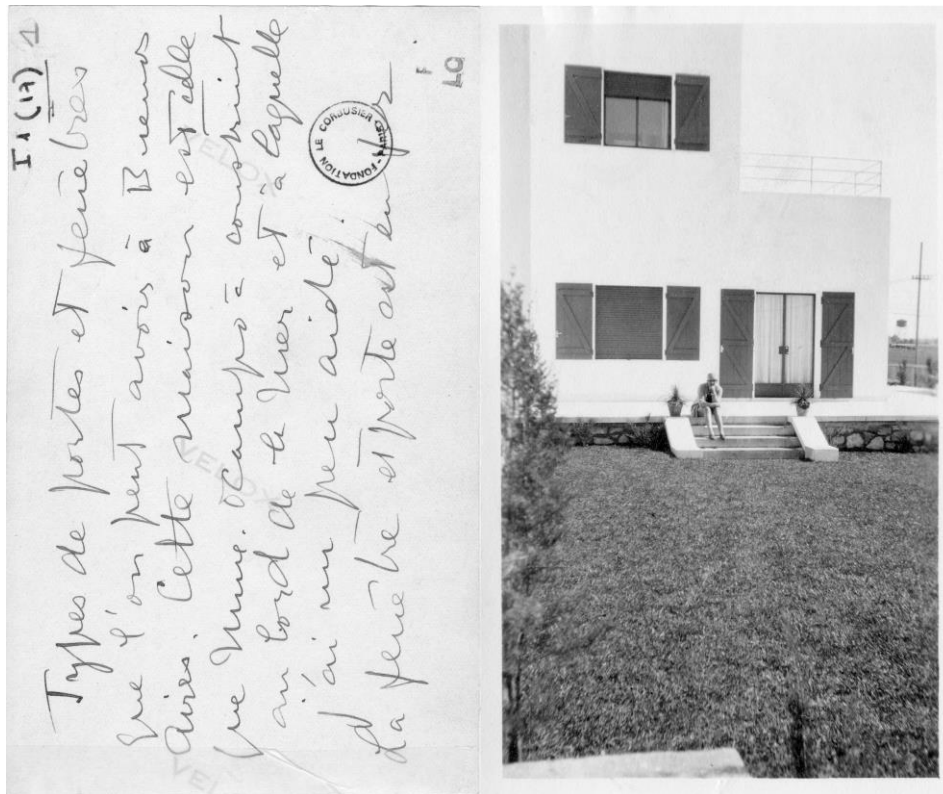 I1(17) 1
Types de portes et fenêtres
que l'on peut avoir à Buenos
Aires. Cette maison est celle
que Mme. Ocampo a construit
au bord de la Mer et à laquelle
j'ai un peu aidé.
La fenêtre et porte est en fer
FONDATION LE CORBUSIER
VELOX
VELOX